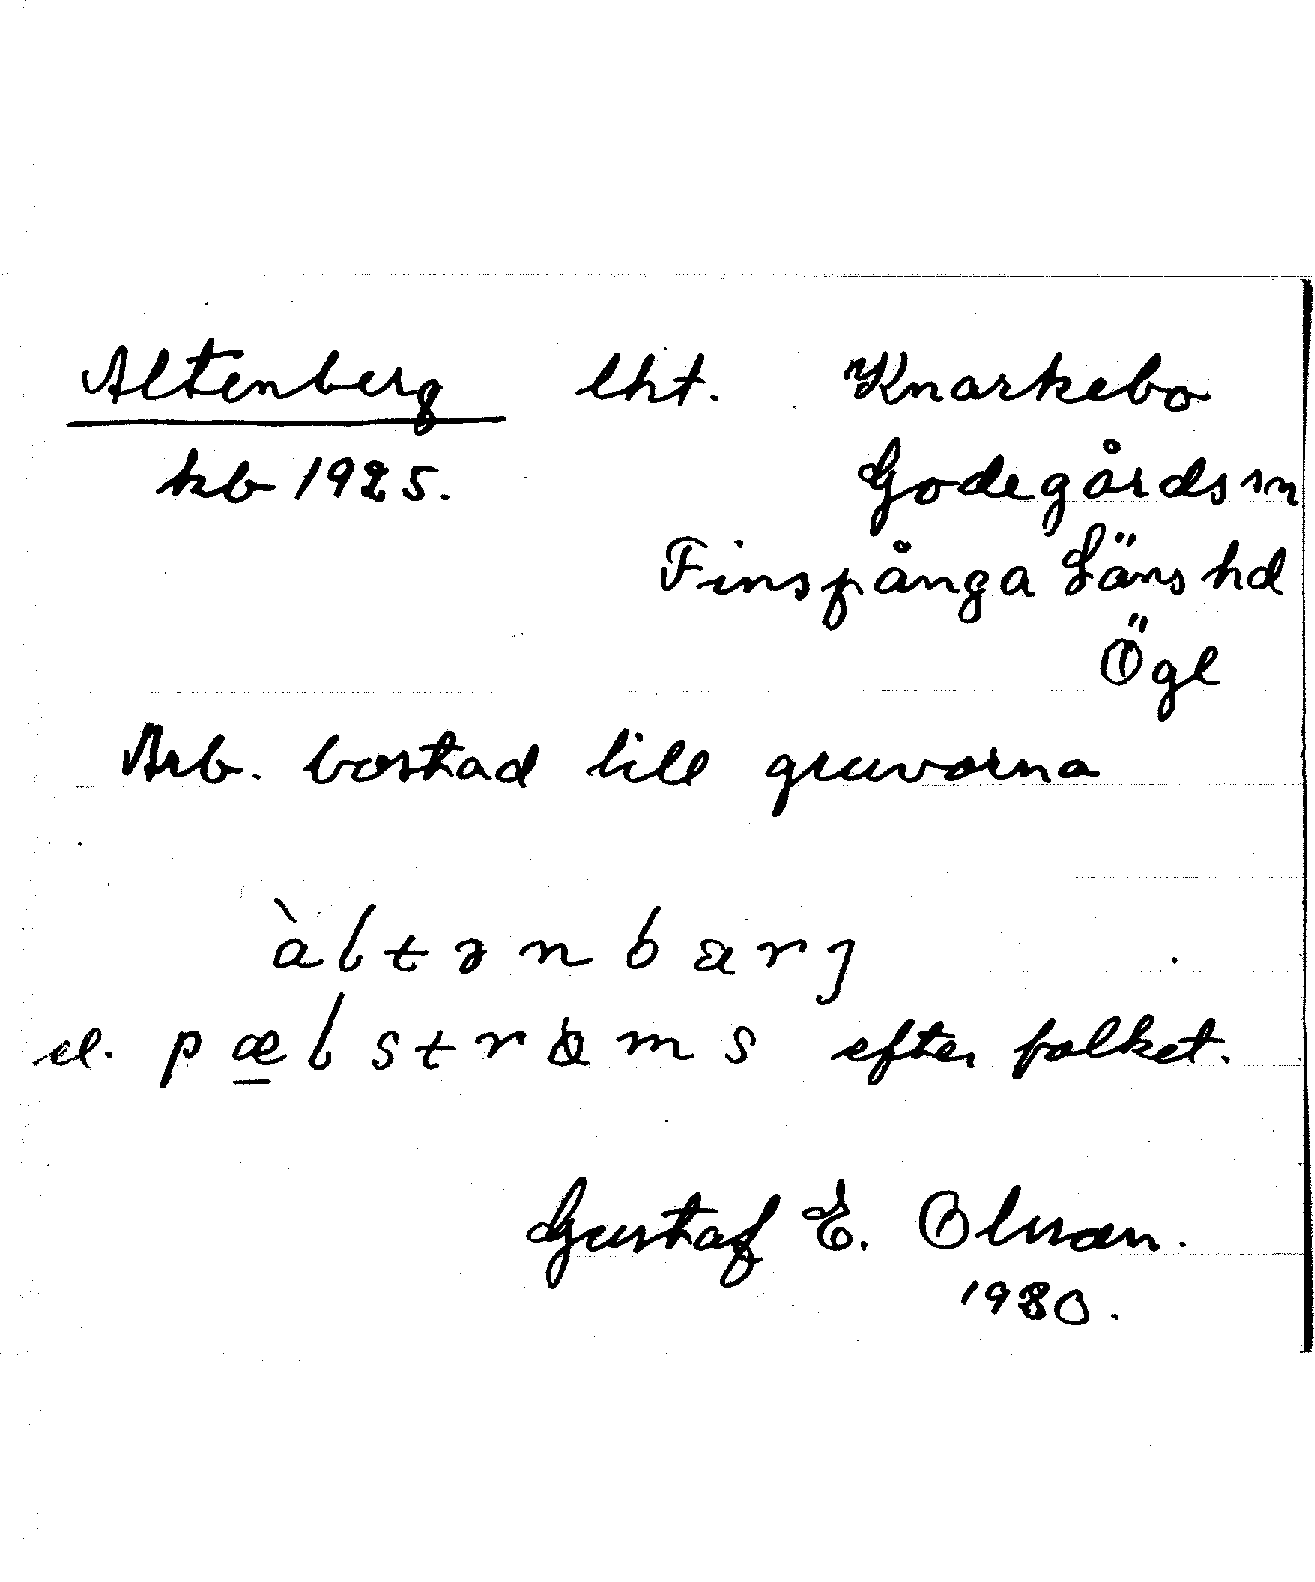 Altenberg lht. Knarkebo
kb 1925. Godegårds sn
Finspånga Läns hd
Ögl
Arb. bostad till gruvorna
àltənbærj
el. pælstrøms efter folket.
Gustaf E. Olsson.
1980.